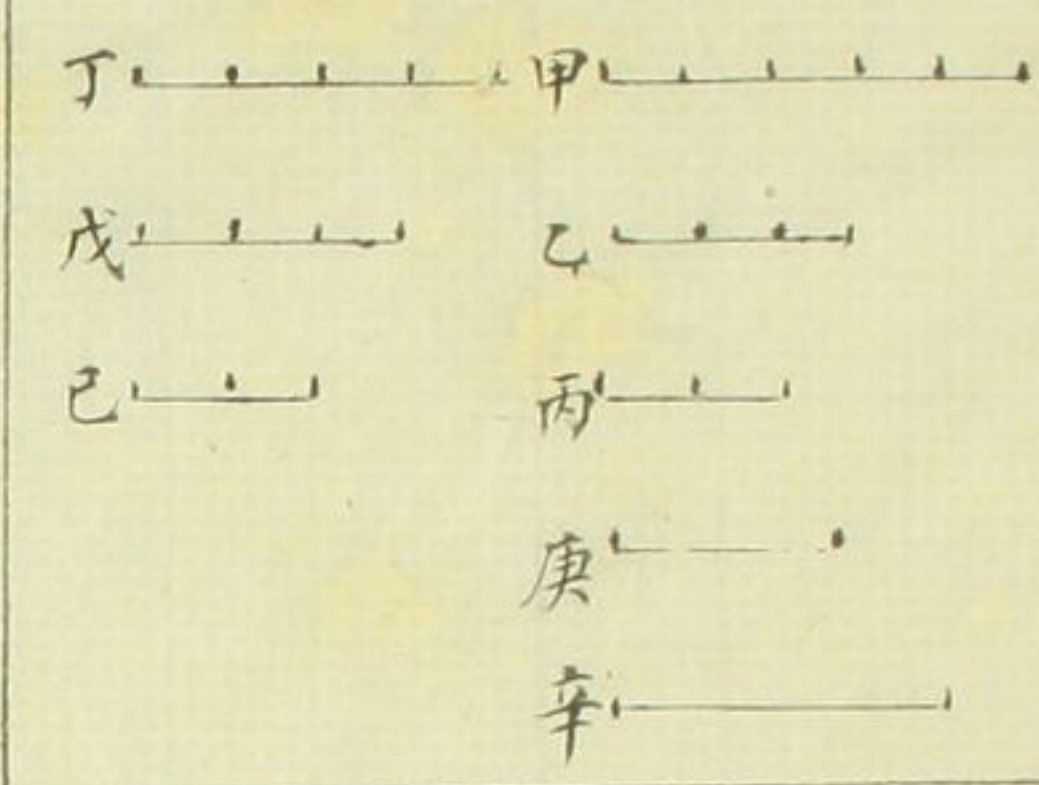 甲
乙
丙
庚
辛
丁
戊
己